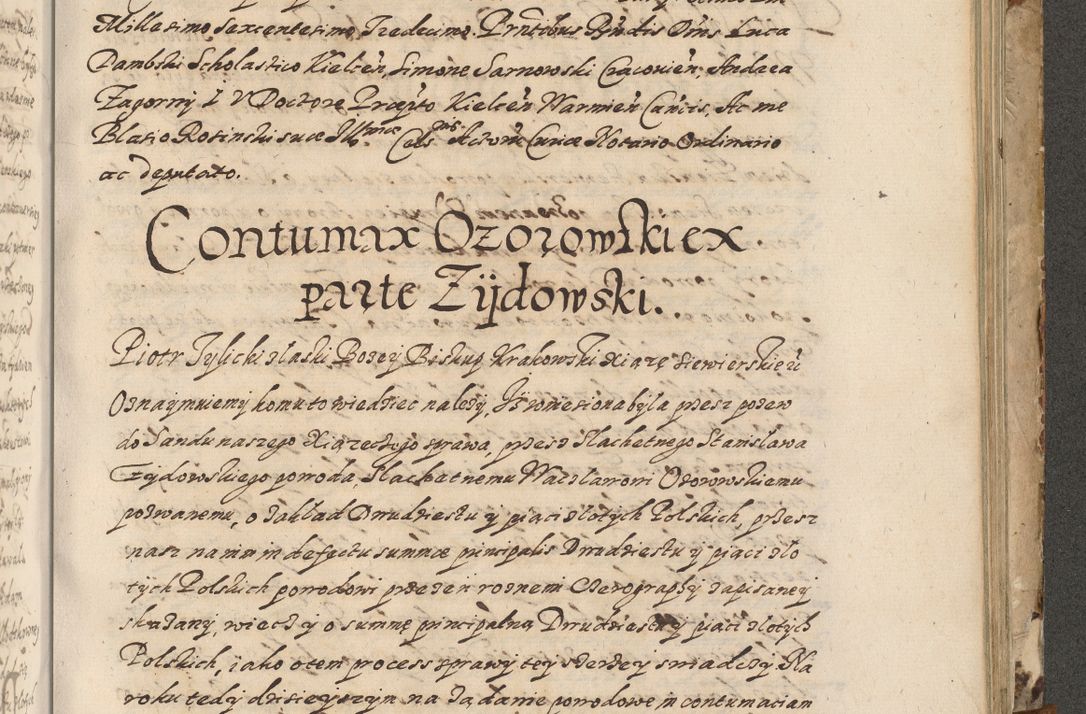 Millesimo Sexcentesimo Tredecimo. Prntibus Rndis Dnis Luca
Dambski Scholastico Kielcen, Simone Sarnowski Cracovien, Andrea
Zagorny I V Doctore Prapto Kielcen Warmien Cancis, Ac me
Blasio Rosinski suae Illmae Celsnis Actorũ Curiæ Notario Ordinario
ac deputato.
Contumax Ozorowski ex
parte Zÿdowski.
Piotr Tylicki z laski Bozey Biskup Krakowski Xiązę Siewierskie
Oznaymuiemy komu to wiedziec nalezy, Iz wniesiona była przez pozew
do Sandu naszego Xiązęcego sprawa, przez Slachetnego Stanisława
Zydowskiego powoda, Slachetnemu Waczlawowi Ozorowskiemu
pozwanemu, o zakład Dwudziestu y piaci złotych Polskich, przesz
nasz na nim in defectu summæ principalis Dwudziestu y piaci zło
tych Polskich powodowi przezen rożnem Cerography zapisaney
skazany, wiec y o summę principalną Dwudziestu y piaci złotych
Polskich, iako o tem process sprawy tey szerzey swiadczy. Na
roku tedy dzisieyszym na ządanie powodowe in contumaciam